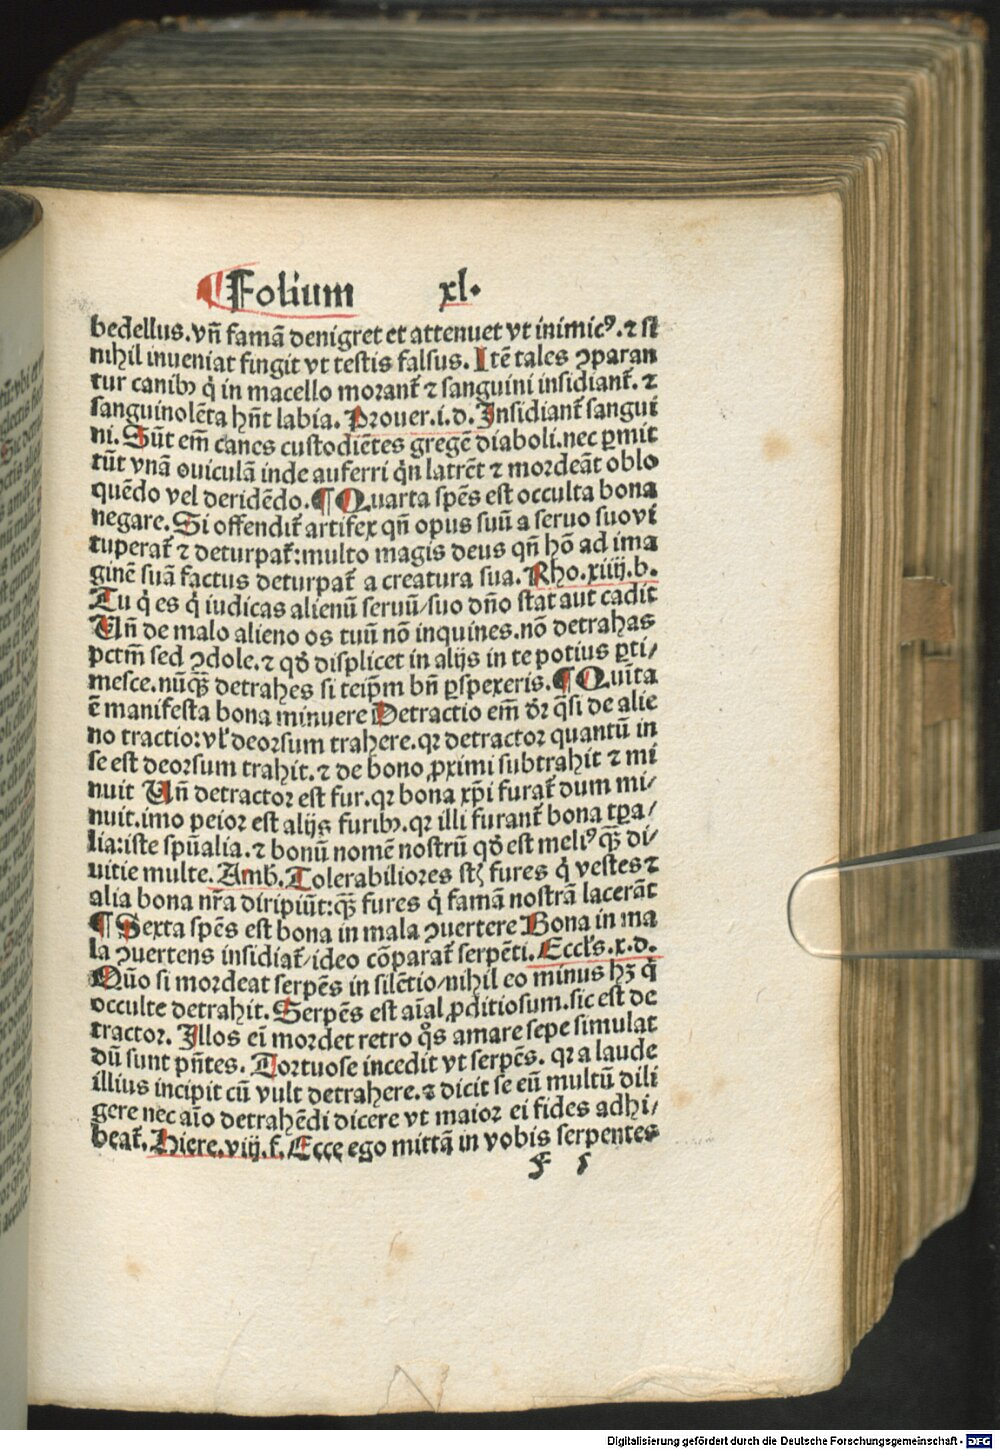 ¶Folium xl.
bedellus. vn̄ famā denigret et attenuet vt inimicꝰ. ⁊ si
nihil inueniat fingit vt testis falsus. Itē tales ꝯparan
tur canibꝫ q̇ in macello morant̄ ⁊ sanguini insidiant̄. ⁊
sanguinolēta hn̄t labia. Prouer. i. d. Insidiant̄ sangui
ni. Sūt em̄ canes custodiētes gregē diaboli. nec ꝑmit
tūt vnā ouiculā inde auferri q̇n latrēt ⁊ mordeāt oblo
quēdo vel deridēdo. ¶ Quarta spēs est occulta bona
negare. Si offendit̄ artifex qn̄ opus suū a seruo suo vi
tuperat̄ ⁊ deturpat̄: multo magis deus qn̄ hō ad ima
ginē suā factus deturpat̄ a creatura sua. Rho. xiiij. b.
Tu q̇ es q̇ iudicas alienū seruū/ suo dn̄o stat aut cadit
Un̄ de malo alieno os tuū nō inquines. nō detrahas
pctm̄ sed ꝯdole. ⁊ qđ displicet in alijs in te potius ꝑti/
mesce. nūqꝫ̄ detrahes si teip̄m bn̄ ꝑspexeris. ¶ Quīta
ē manifesta bona minuere Detractio em̄ dr̄ q̄si de alie
no tractio: vl̕ deorsum trahere. qꝛ detractor quantū in
se est deorsum trahit. ⁊ de bono ꝓximi subtrahit ⁊ mi
nuit Un̄ detractor est fur. qꝛ bona xp̄i furat̄ dum mi/
nuit. imo peior est alijs furibꝫ. qꝛ illi furant̄ bona tꝑa/
lia: iste spūalia. ⁊ bonū nomē nostrū qđ est meliꝰ qꝫ̄ di/
uitie multe. Amb. Tolerabiliores st̄ fures q̇ vestes ⁊
alia bona nr̄a diripiūt: qꝫ̄ fures q̇ famā nostrā lacerāt
¶ Sexta spēs est bona in mala ꝯuertere Bona in ma
la ꝯuertens insidiat̄/ ideo cōparat̄ serpēti. Eccl̕s. x. d.
Quō si mordeat serpēs in silētio/ nihil eo minus hꝫ q̇
occulte detrahit. Serpēs est aīal ꝓditiosum. sic est de
tractor. Illos eī mordet retro q̊s amare sepe simulat
dū sunt pn̄tes. Tortuose incedit vt serpēs. qꝛ a laude
illius incipit cū vult detrahere. ⁊ dicit se eū multū dili
gere nec aīo detrahēdi dicere vt maior ei fides adhi/
beat̄. Hiere. viij. f. Ecce ego mittā in vobis serpentes